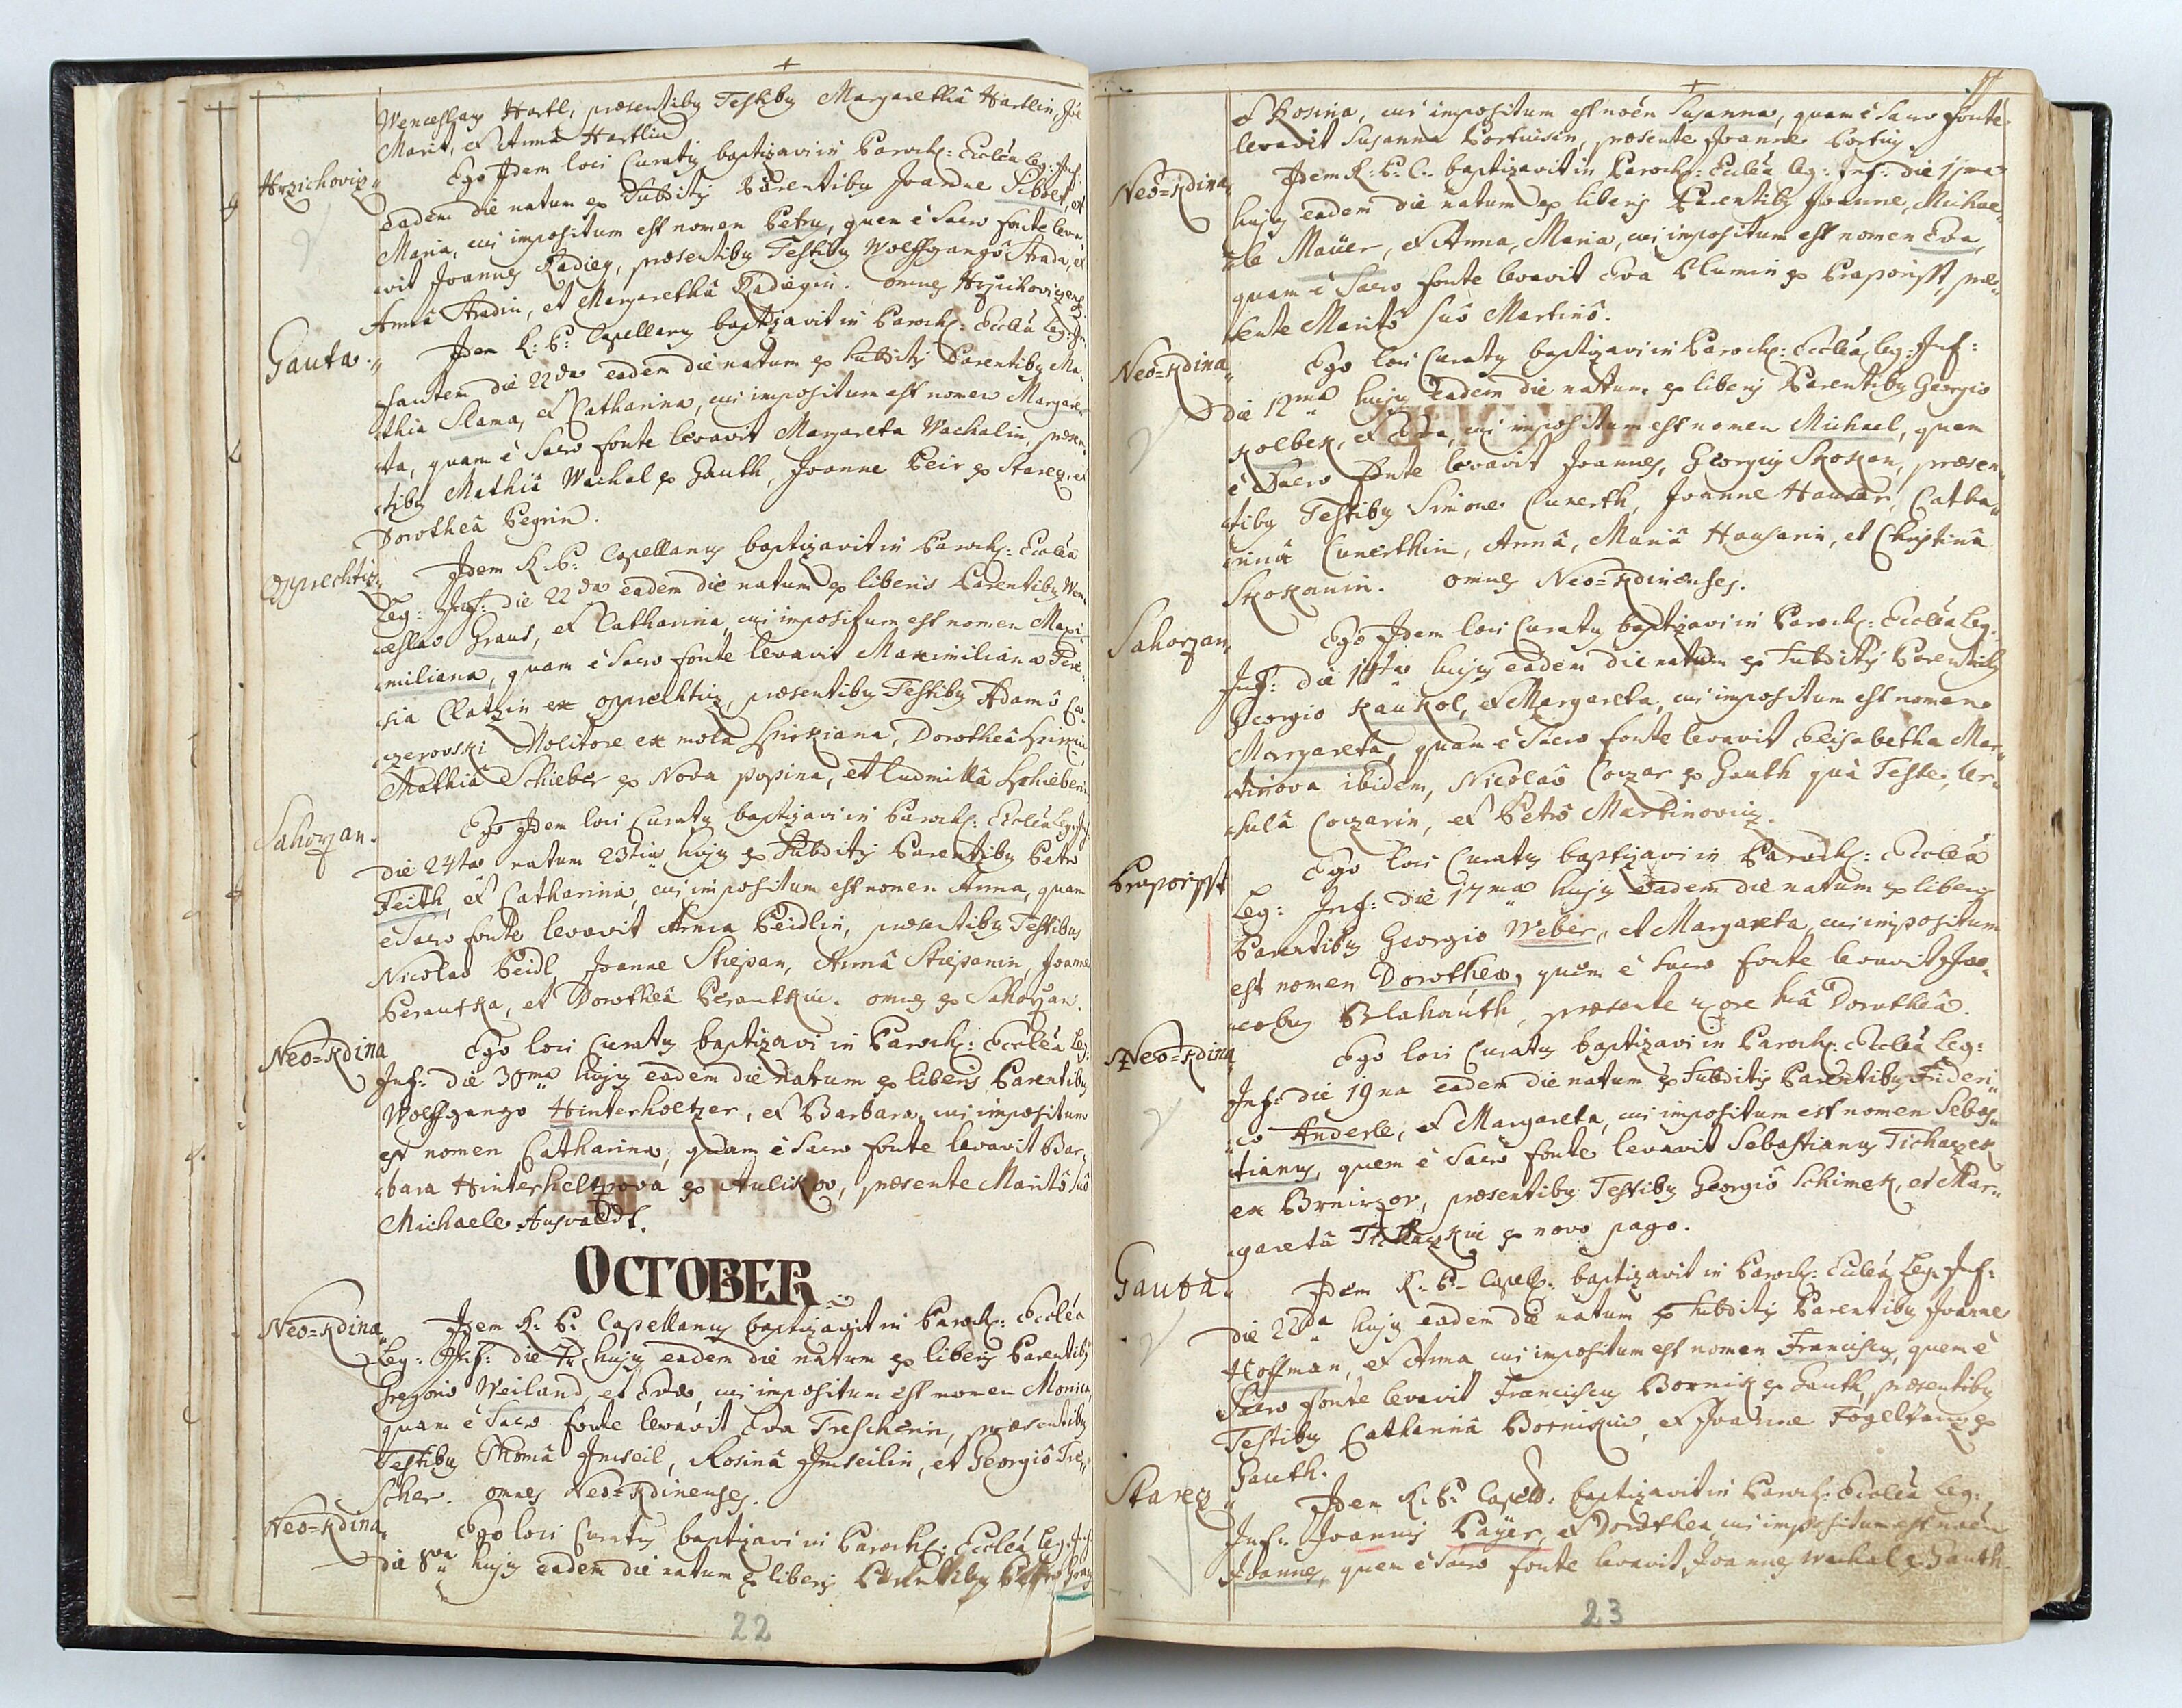 Wenceslaus Hartl, præsentibus Testibus Margarethâ Hartlin, Jõe
Marit, et Annâ Hartlin
Hrzichoviz Ego Idem loci Curatus baptizavi in Paroch: Ecclêa Leg: Inf:
eadem die natum ex Subditis Parentibus Joanne Sibolt, et
Maria, cui impositum est nomen Petrus, quem è Sacro fonte leva„
vit Joannes Radiey, præsentibus Testibus Wolffgangô Strada, et
Annâ Stradin, et Margarethâ Radiegin. omnes Hrzichovizens:
Gauta. Idem R: P: Capellanus baptizavit in Paroch: Ecclêa Leg: In„
fantem die 22da eadem die natum ex Subditis Parentibus Ma„
thia Slama, et Catharina, cui impositum est nomen Margare„
ta, quam è Sacro fonte levavit Margareta Wachalin, præsen„
tibus Mathiâ Wachal ex Gauth, Joanne Peir ex Starez, et
Dorotheâ Pegrin.
Opprechtiz Idem R: P: Capellanus baptizavit in Paroch: Ecclêa
Leg: Inf: die 22da eadem die natum ex liberis Parentibus Wen„
ceslao Graus, et Catharina, cui impositum est nomen Maxi„
miliana, quam è Sacro fonte levavit Maximiliana There„
sia Clatzin ex Opprechtiz, præsentibus Testibus Adamô Ca„
czerovski Molitore ex mola
Mathiâ Schieber ex Nova popina, et Ludmillâ Schieberin
Sahorzan. Ego Idem loci Curatus baptizavi in Paroch: Ecclêa Leg: Inf:
die 24ta natum 23tia hujus ex Subditis Parentibus Petro
Feith, et Catharina, cui impositum est nomen Anna, quam
è Sacro fonte levavit Anna Peidlin, præsentibus Testibus
Nicolao Peidl, Joanne Stiepan, Annâ Stiepanin, Joanne
Perautka, et Dorotheâ Perautkin. omnes ex Sahorzan.
Neo=Kdina Ego loci Curatus baptizavi in Paroch: Ecclêa Leg:
Inf: die 30ma hujus eadem die natum ex liberis Parentibus
Wolffgango Hinterholtzer, et Barbara, cui impositum
est nomen Catharina, quam è Sacro fonte levavit Bar„
bara Hinterholtzova ex Aulikov, præsente Maritô suô
Michaele
OCTOBER
Neo=Kdina Idem R: P: Capellanus baptizavit in Paroch: Ecclêa
Leg: Inf: die 7 hujus eadem die natum ex liberis Parentibus
Gregorio Weiland, et Eva, cui impositum est nomen Monica,
quam è Sacro fonte levavit Eva Treschérin, præsentibus
Testibus Thomâ Imseil, Rosinâ Imseilin, et Georgiô Tre„
scher. omnes Neo=Kdinenses.
Neo=Kdina Ego loci Curatus baptizavi in Paroch: Ecclêa Leg: Inf:
die 8va hujus eadem die natum ex liberis Parentibus Petro
22
et Rosina, cui impositum est noên Susanna, quam è Sacro fonte
levavit Susanna Portuisin, præsente Joanne Portuis.
Neo=Kdina Idem R: P: C: baptizavit in Paroch: Ecclêa Leg: Inf: die 11ma
hujus eadem die natum ex liberis Parentibus Joanne, Michae„
le Maüer, et Anna, Maria, cui impositum est nomen Eva,
quam è Sacro fonte levavit Eva Blumin ex Praporisst, præ„
sente Maritô suô Martinô.
Neo=Kdina Ego loci Curatus baptizavi in Paroch: Ecclêa, Leg: Inf:
die 12ma hujus eadem die natum ex liberis Parentibus Georgio
Kolbek, et Eva, cui impositum est nomen Michael, quem
è Sacro fonte levavit Joannes, Georgius Skokan, præsen„
tibus Testibus Simone Cunerth, Joanne Hausar, Catha„
rinâ Cunérthin, Annâ, Mariâ Hausarin, et Christinâ
Skokanin. omnes Neo=Kdinenses.
Sahorzan Ego Idem loci Curatus baptizavi in Paroch: Ecclêa Leg:
Inf: die 14ta hujus eadem die natum ex Subditis Parentibus
Georgio Kaukol, et Margareta, cui impositum est nomen
Margareta, quam è Sacro fonte levavit Elisabetha Mar„
tinova ibidem, Nicolaô Couzar ex Gauth quà Teste, Ur„
sulâ Couzarin, et Petrô Martinoviz.
Praporisst Ego loci Curatus baptizavi in Paroch: Ecclêa
Leg: Inf: die 17ma hujus eadem die natum ex liberis
Parentibus Georgio Weber, et Margareta, cui impositum
est nomen Dorothea, quem è Sacro fonte levavit Ja„
cobus Blahauth, præsente uxore suâ Dorotheâ.
Neo=Kdina Ego loci Curatus baptizavi in Paroch: Ecclêa Leg:
Inf: die 19na eadem die natum ex Subditis Parentibus Frideri„
co Anderle, et Margareta, cui impositum est nomen Sebas„
tianus, quem è Sacro fonte levavit Sebastianus Tichaczek
ex Brnirzov, præsentibus Testibus Georgiô Schimek, et Mar„
garetâ ex novo pago.
Gauta. Idem R: P: Capell: baptizavit in Paroch: Ecclêa, Leg: Inf:
die 22da hujus eadem die natum ex Subditis Parentibus Joanne
Hoffman, et Anna cui impositum est nomen Franciscus, quem è
Sacro fonte levavit Franciscus Bornik ex Gauth, præsentibus
Testibus Catharinâ Bornikin, et Joanne Fogeltanz ex
Gauth.
Starez Idem R: P: Capell: baptizavit in Paroch: Ecclêa Leg:
Inf: Joannis Payer, et Dorothea, cui impositum est noên
Joannes, quem è Sacro fonte levavit Joannes Wachal ex Gauth
23